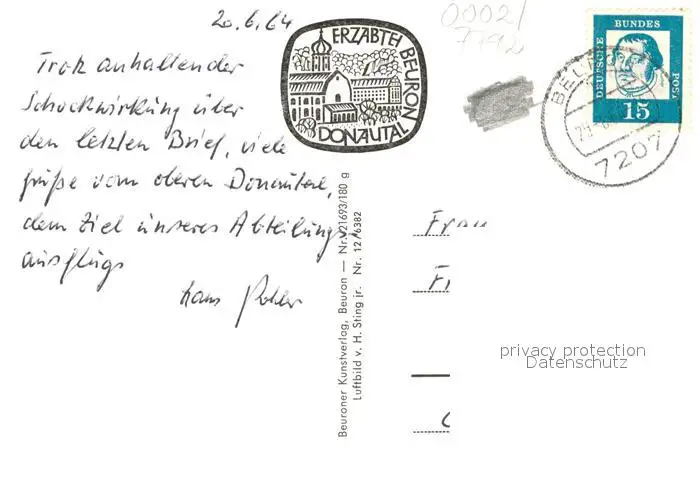 20.6.64
Trotz anhaltender
Schockwirkung über
den letzten Brief, viele
Grüße vom oberen Donautal,
dem Ziel unseres Abteilungs-
ausflugs
Hans
ERZABTEI BEURON
DONAUTAL
Beuroner Kunstverlag, Beuron — Nr. V21693/180 g
Luftbild v. H. Sting jr. Nr. 12/6382
0002/
7792
DEUTSCHE
BUNDES
POST
15
7207
Frau
privacy protection
Datenschutz